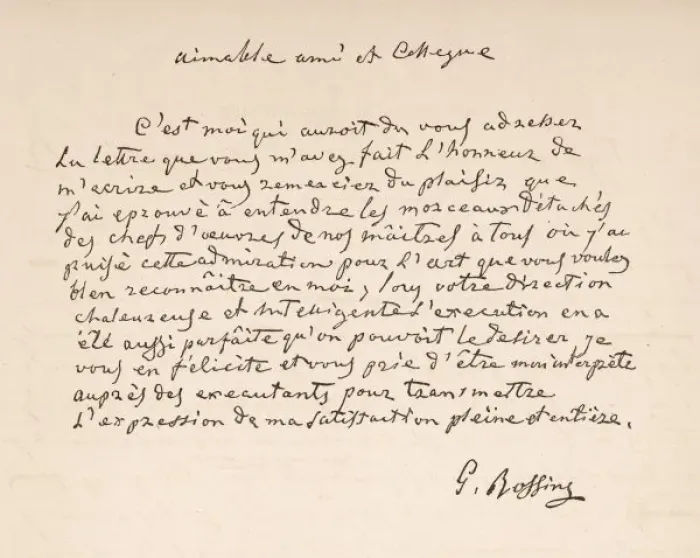 aimable ami et Collegue
C'est moi qui auroit du vous adresser
La lettre que vous m'avez fait L'honneur de
m'ecrire et vous remerciez du plaisir que
j'ai eprouvè â entendre les morceaux détachés
des chefs d'œuvres de nos mâitres à tous où j'ai
puisé cette admiration pour L'art que vous voulez
bien reconnâitre en moi, sous votre direction
chaleureuse et intelligente L'execution en a
été aussi parfâite qu'on pouvoit le desirer, je
vous en félicite et vous prie d'être mon interprête
auprès des executants pour transmettre
L'expression de ma satisfaction pleine et entière.
G. Rossini